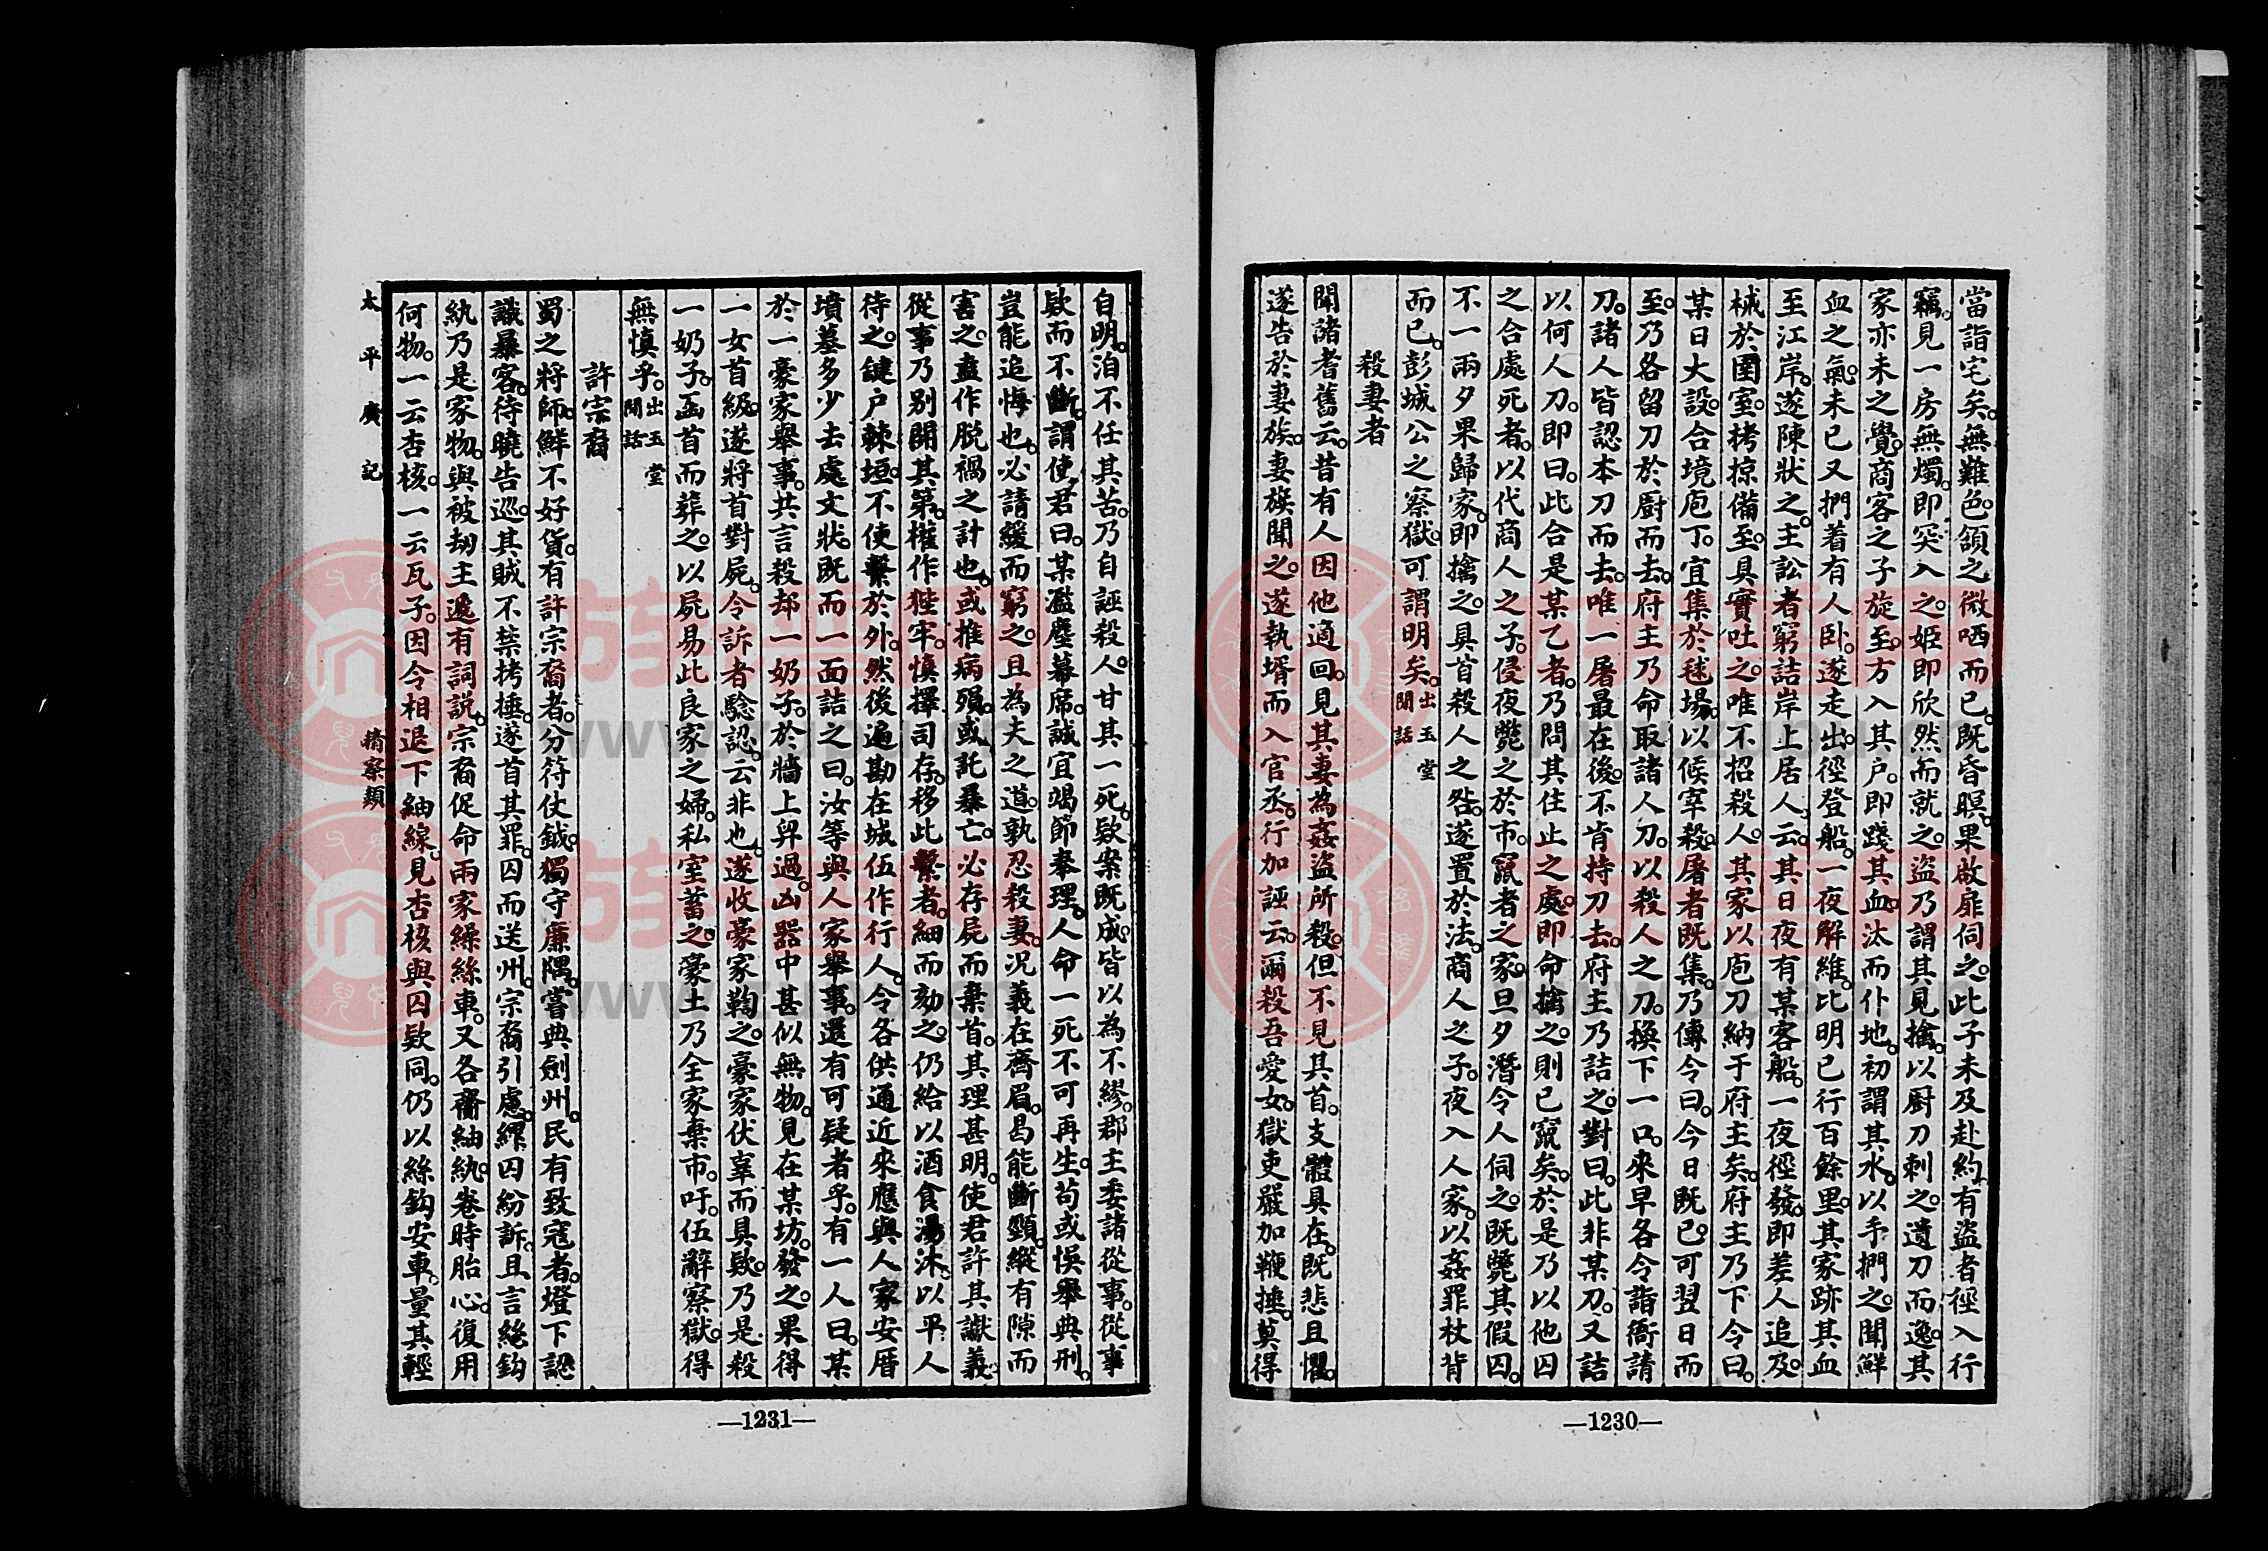 當詣宅矣。無難色。頷之微哂而已。既昏暝。果啟扉伺之。此子未及赴約。有盜者徑入行
竊。見一房無燭。即突入之。姬即欣然而就之。盜乃謂其見擒。以厨刀刺之。遺刀而逸。其
家亦未之覺。商客之子旋至。方入其户。即踐其血。汰而仆地。初謂其水。以手捫之。聞鮮
血之氣。未已又捫着有人卧。遂走出。徑登船。一夜解維。比明已行百餘里。其家跡其血
至江岸。遂陳狀之。主訟者窮詰岸上居人。云。其日夜有某客船。一夜徑發。即差人追及。
械於圄室。拷掠備至。具實吐之。唯不招殺人。其家以庖刀納于府主矣。府主乃下令曰。
某日大設。合境庖丁。宜集於毬場。以候宰殺。屠者既集。乃傳令曰。今日既已。可翌日而
至。乃各留刀於厨而去。府主乃命取諸人刀。以殺人之刀。換下一口。來早各令詣衙請
刀。諸人皆認本刀而去。唯一屠最在後。不肯持刀去。府主乃詰之。對曰。此非某刀。又詰
以何人刀。即曰。此合是某乙者。乃問其住止之處。即命擒之。則已竄矣。於是乃以他囚
之合處死者。以代商人之子。侵夜斃之於市。竄者之家。旦夕潛令人伺之。既斃其假囚。
不一兩夕果歸家。即擒之。具首殺人之咎。遂置於法。商人之子。夜入人家。以姦罪杖背
而已。彭城公之察獄。可謂明矣。出玉堂閒話
殺妻者
聞諸耆舊云。昔有人因他適回。見其妻為姦盜所殺。但不見其首。支體具在。既悲且懼。
遂告於妻族。妻族聞之。遂執壻而入官丞。行加誣云。爾殺吾愛女。獄吏嚴加鞭捶。莫得
—1230—
自明。洎不任其苦。乃自誣殺人。甘其一死。欵案既成。皆以為不繆。郡主委諸從事。從事
欵而不斷。謂使君曰。某濫塵幕席。誠宜竭節奉理。人命一死不可再生。苟或悞舉典刑。
豈能追悔也。必請緩而窮之。且為夫之道。孰忍殺妻。况義在齊眉。曷能斷頸。縱有隙而
害之。盍作脫禍之計也。或推病殞。或託暴亡。必存屍而棄首。其理甚明。使君許其讞義。
從事乃別開其第。權作狴牢。慎擇司存。移此繫者。細而劾之。仍給以酒食湯沐。以平人
待之。鍵户棘垣。不使繫於外。然後遍勘在城伍作行人。令各供通近來應與人家安厝
墳墓多少去處文狀。既而一面詰之曰。汝等與人家舉事。還有可疑者乎。有一人曰。某
於一豪家舉事。共言殺却一奶子。於墻上舁過。凶器中甚似無物。見在某坊。發之。果得
一女首級。遂將首對屍。令訴者驗認。云非也。遂收豪家鞫之。豪家伏辜而具欵。乃是殺
一奶子。函首而葬之。以屍易此良家之婦。私室蓄之。豪士乃全家棄市。吁。伍辭察獄。得
無慎乎。出玉堂閒話
許宗裔
蜀之將帥。鮮不好貨。有許宗裔者。分符仗鉞。獨守廉隅。嘗典劍州。民有致寇者。燈下認
識暴客。待曉告巡。其賊不禁拷捶。遂首其罪。囚而送州。宗裔引慮。縲囚紛訴。且言絲鈎
紈乃是家物。與被劫主遞有詞説。宗裔促命兩家繰絲車。又各齎紬紈。卷時胎心。復用
何物。一云杏核。一云瓦子。因令相退下紬線。見杏核與囚欵同。仍以絲鈎安車。量其輕
太平廣記
精察類
—1231—